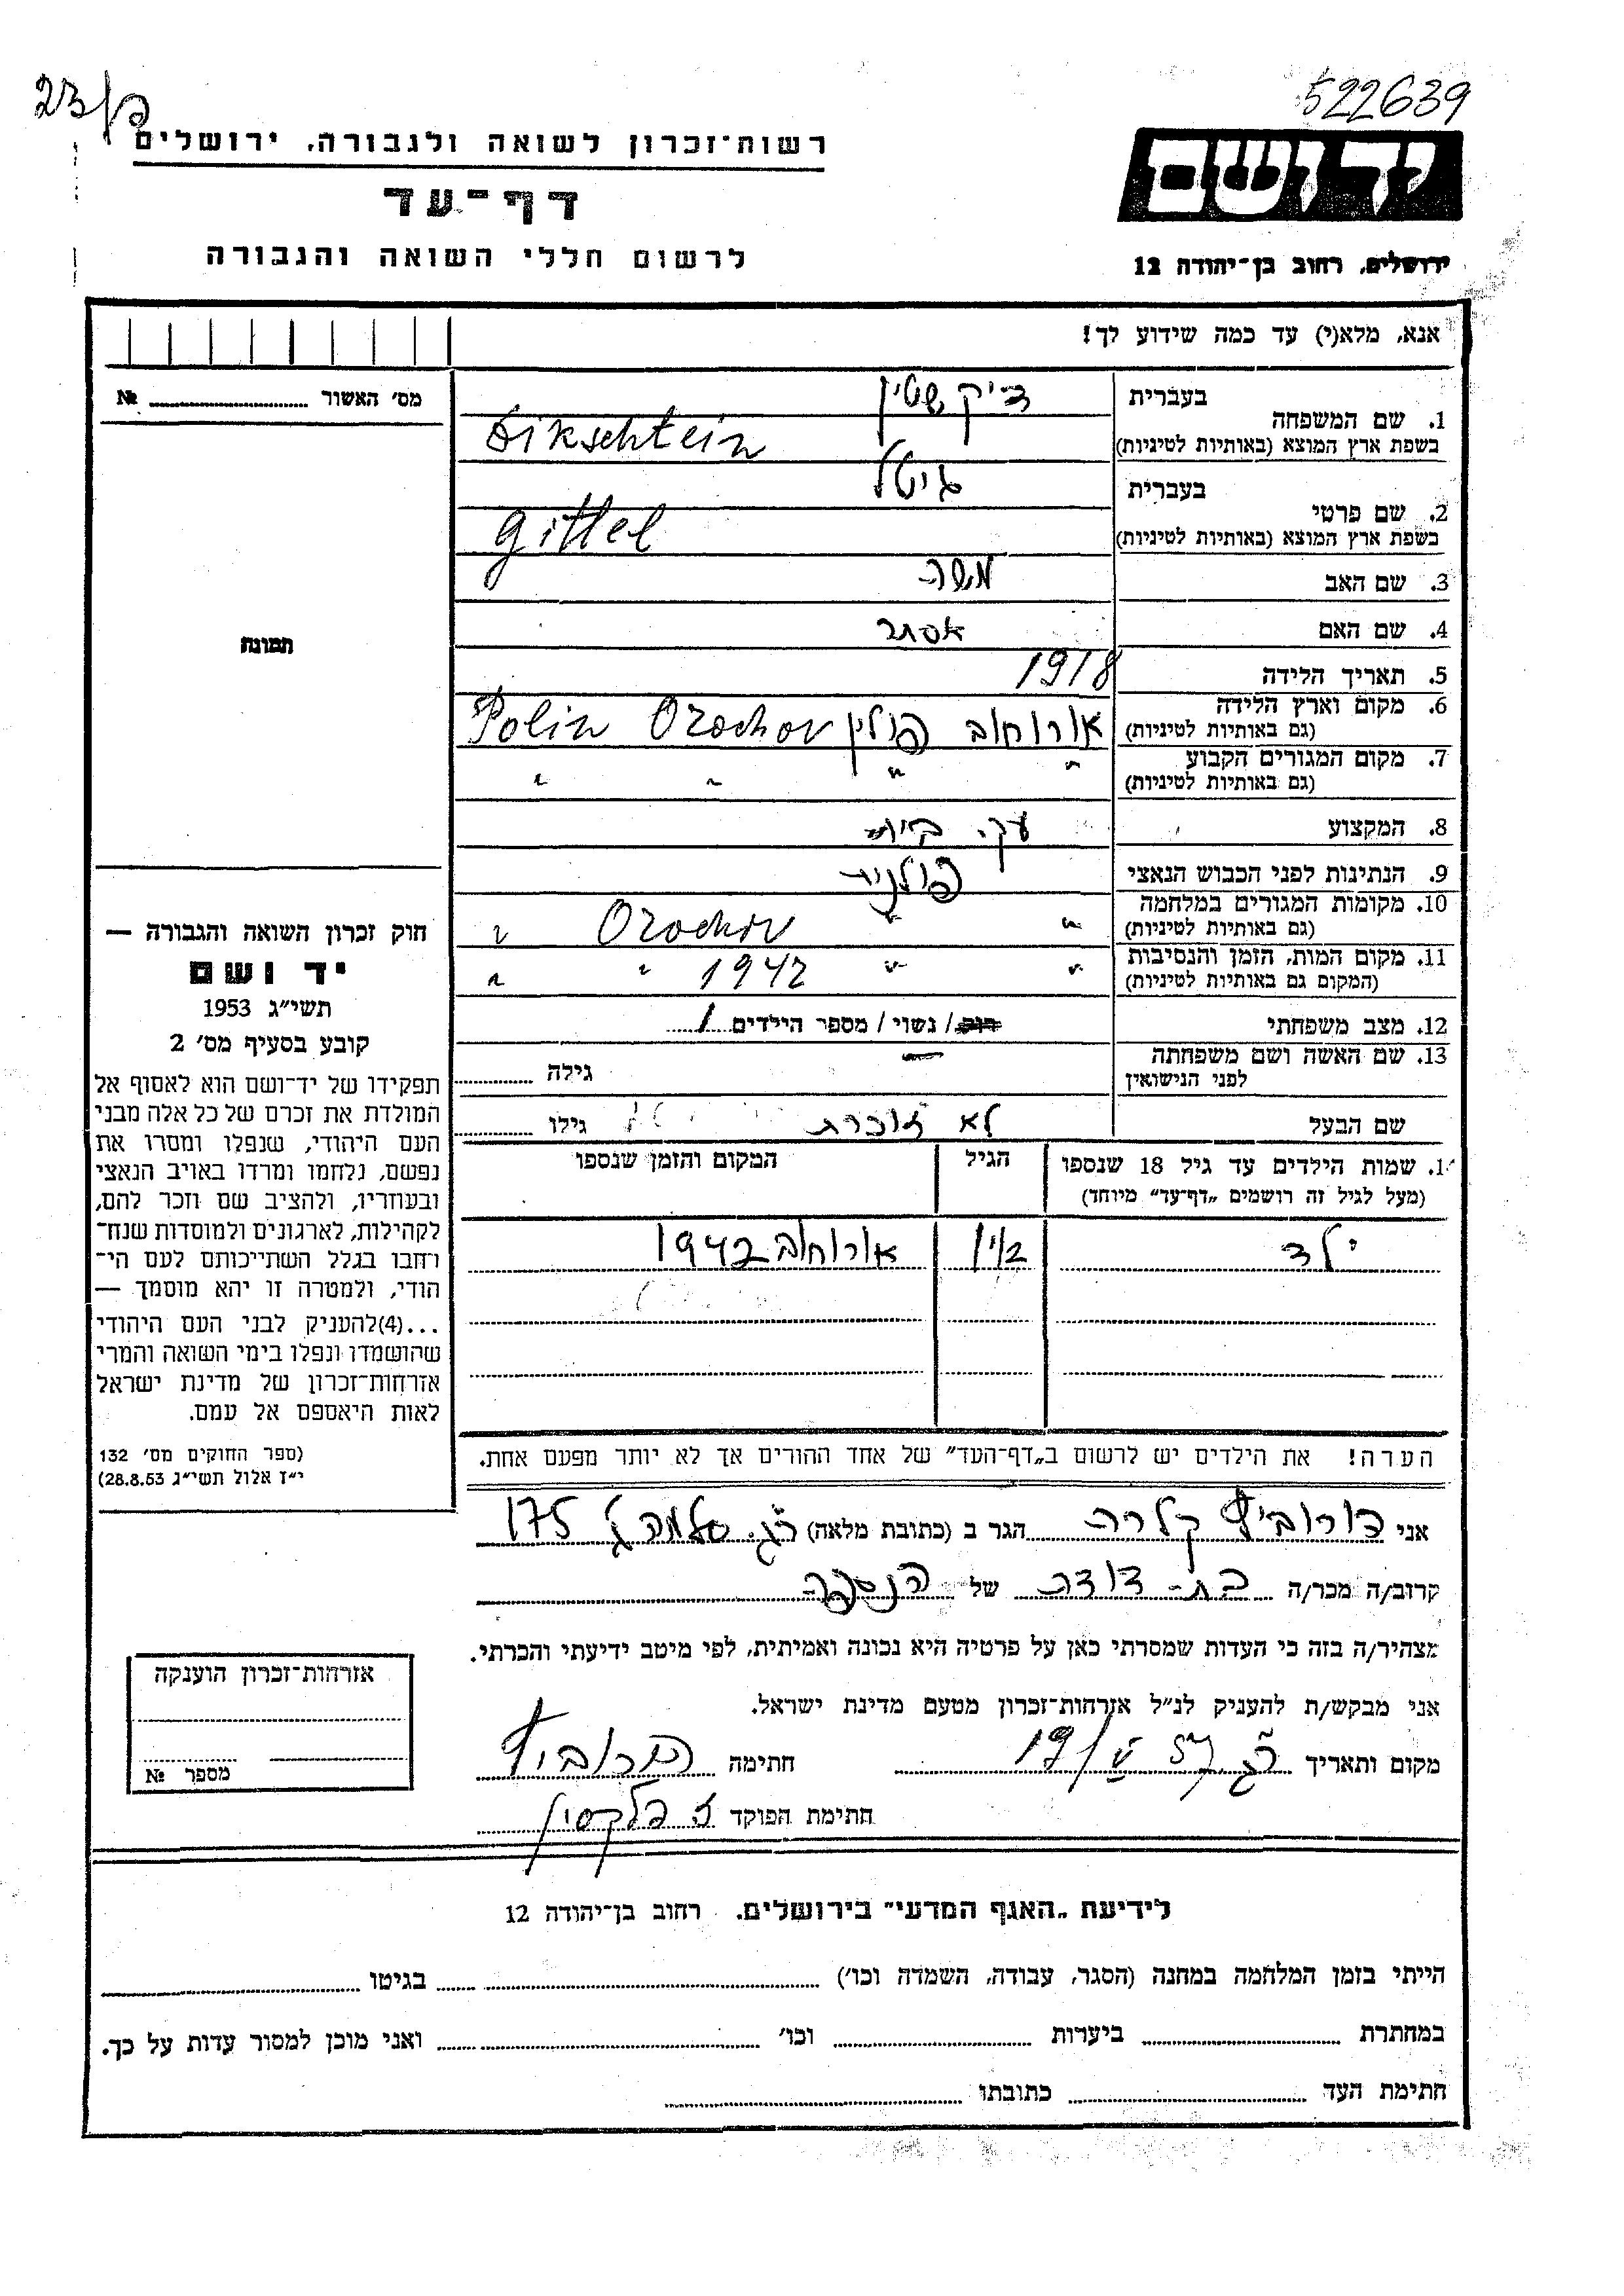 522639
23/פ
רשות־זכרון לשואה ולגבורה, ירושלים
דף־עד
לרשום חללי השואה והגבורה
יד ושם
ירושלים, רחוב בן־יהודה 12
אנא, מלא(י) עד כמה שידוע לך!
מס׳ האשור № ........
תמונה
1. שם המשפחה
בעברית
דיקשטין
בשפת ארץ המוצא (באותיות לטיניות)
Dikschtein
2. שם פרטי
בעברית
גיטל
בשפת ארץ המוצא (באותיות לטיניות)
Gittel
3. שם האב משה
4. שם האם אסתר
5. תאריך הלידה 1918
6. מקום וארץ הלידה
(גם באותיות לטיניות)
אורוחוב פולין Orochov Polin
7. מקום המגורים הקבוע
(גם באותיות לטיניות)
" " " "
8. המקצוע עק. בית
9. הנתינות לפני הכבוש הנאצי פולנית
10. מקומות המגורים במלחמה
(גם באותיות לטיניות)
" " Orochov "
11. מקום המות, הזמן והנסיבות
(המקום גם באותיות לטיניות)
" " 1942 " "
12. מצב משפחתי רוק/ נשוי / מספר הילדים 1
13. שם האשה ושם משפחתה
לפני הנישואין
— גילה
שם הבעל לא זוכרת גילו
14. שמות הילדים עד גיל 18 שנספו
(מעל לגיל זה רושמים „דף־עד” מיוחד)
הגיל
המקום והזמן שנספו
ילד
אורוחוב 1942
הערה! את הילדים יש לרשום ב„דף־העד” של אחד ההורים אך לא יותר מפעם אחת.
חוק זכרון השואה והגבורה —
יד ושם
תשי״ג 1953
קובע בסעיף מס׳ 2
תפקידו של יד־ושם הוא לאסוף אל
המולדת את זכרם של כל אלה מבני
העם היהודי, שנפלו ומסרו את
נפשם, נלחמו ומרדו באויב הנאצי
ובעוזריו, ולהציב שם וזכר להם,
לקהילות, לארגונים ולמוסדות שנח־
רחבו בגלל השתייכותם לעם הי־
הודי, ולמטרה זו יהא מוסמך —
...(4)להעניק לבני העם היהודי
שהושמדו ונפלו בימי השואה והמרי
אזרחות־זכרון של מדינת ישראל
לאות היאספם אל עמם.
(ספר החוקים מס׳ 132
י״ז אלול תשי״ג 28.8.53)
אני הורוביץ קלרה הגר ב (כתובת מלאה) 175
קרוב/ה מכר/ה בת-דודה של הנספה
מצהיר/ה בזה כי העדות שמסרתי כאן על פרטיה היא נכונה ואמיתית, לפי מיטב ידיעתי והכרתי.
אני מבקש/ת להעניק לנ״ל אזרחות־זכרון מטעם מדינת ישראל.
מקום ותאריך 19/V 57 חתימה הורוביץ
חתימת הפוקד
אזרחות־זכרון הוענקה
מספר №
לידיעת „האגף המדעי” בירושלים. רחוב בן־יהודה 12
הייתי בזמן המלחמה במחנה (הסגר, עבודה, השמדה וכו׳) בגיטו
במחתרת ביערות וכו׳ ואני מוכן למסור עדות על כך.
חתימת העד כתובתו